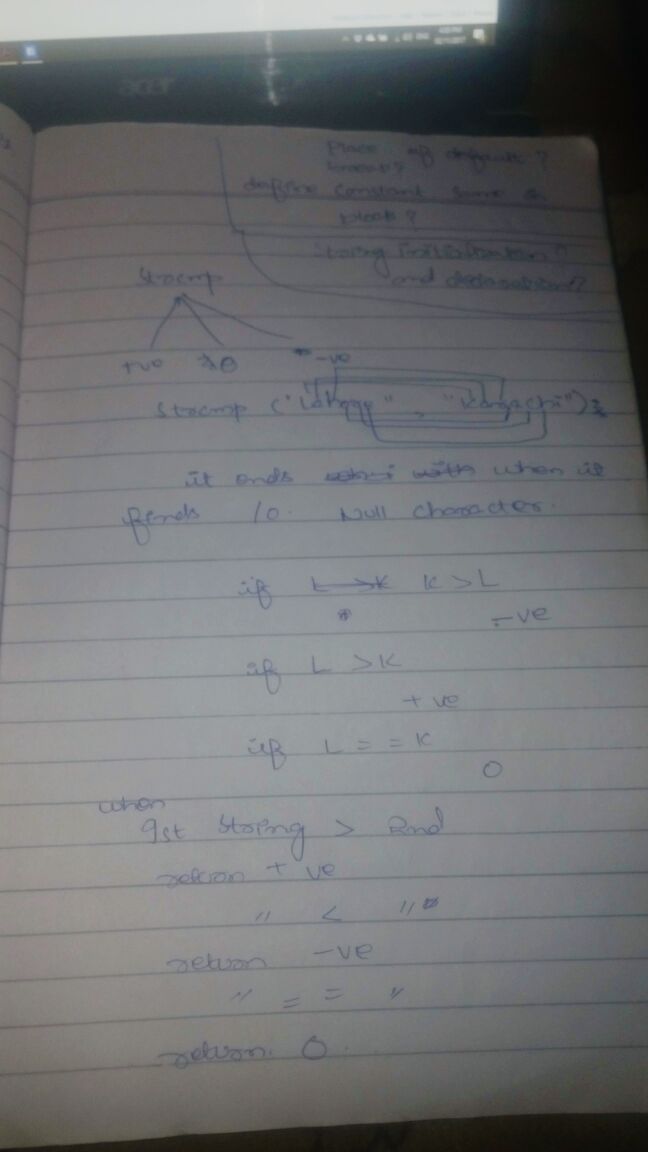 acer
Place of default?
define constant same in
block?
String initialization?
and declaration?
Strcmp
+ve 0 -ve
Strcmp ("Lahore", "Karachi");
it ends with when it
finds \0. Null character.
if K > L
-ve
if L > K
+ve
if L == K
0
when
1st String > 2nd
return +ve
" < "
return -ve
" == "
return 0.